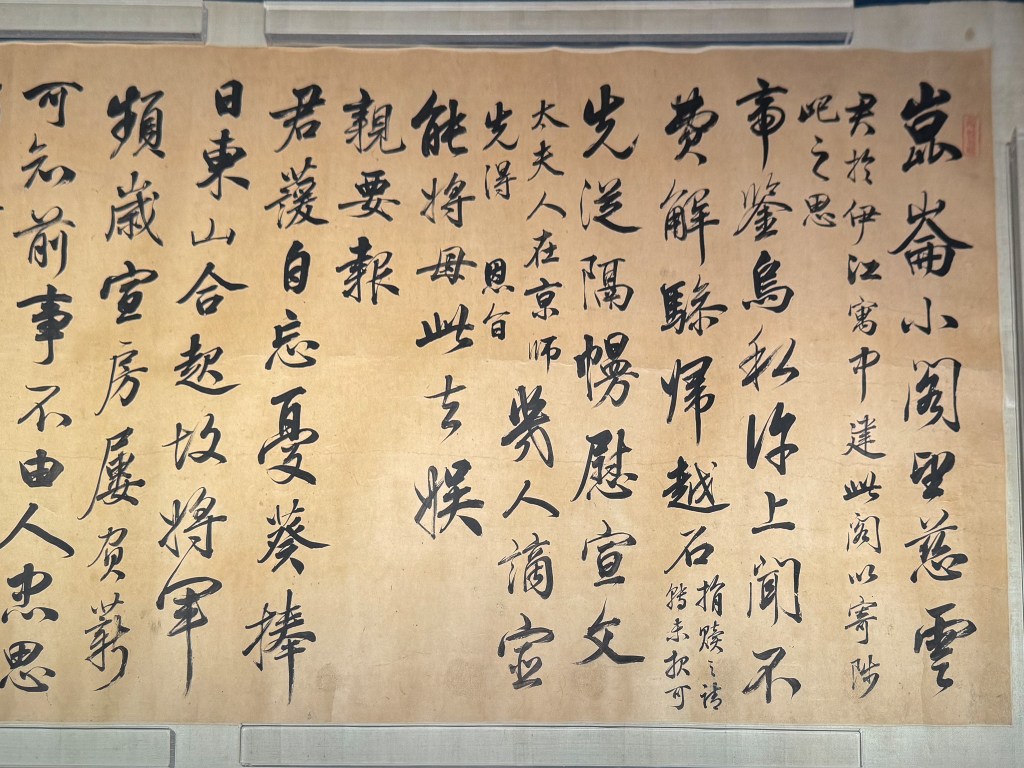 崑崙小閣望慈雲
君於伊江寓中建此閣以寄陟
屺之思
帝鑒烏私許上聞不
費解驂歸越石
捐贖之請
未報可
先從隔幔慰宣文
太夫人在京師
先得 恩旨
勞人謫宦
能將母此去娛
親要報
君蘐自忘憂葵捧
日東山合起故將軍
頻歲宣房屢負薪
可知前事不由人忠思